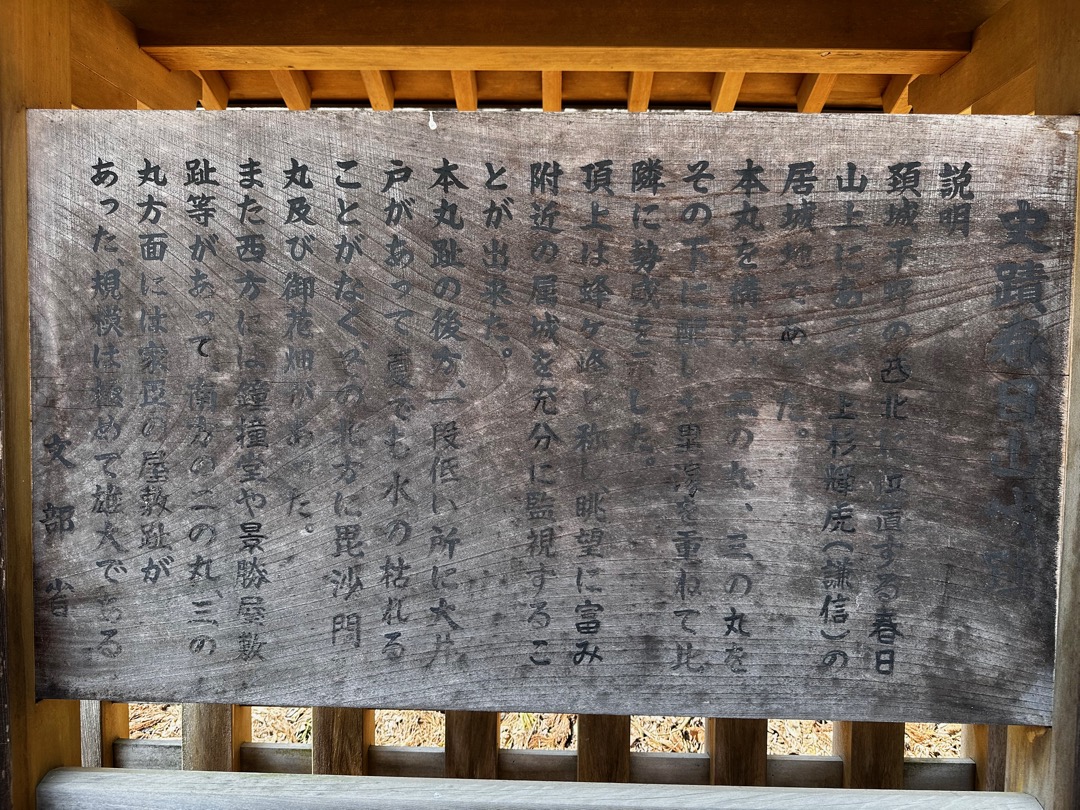 史蹟春日山城跡
説明
頚城平野の西北に位置する春日
山上にあって上杉輝虎(謙信)の
居城地であった。
本丸を構え、二の丸、三の丸を
その下に重ねて比
隣に勢威を示した。
頂上は蜂ヶ峰と称し眺望に富み
附近の属城を充分に監視するこ
とが出来た。
本丸趾の後方、一段低い所に大井
戸があって夏でも水の枯れる
ことがなくその北方に毘沙門
丸及び御花畑があった。
また西方には鐘撞堂や景勝屋敷
趾等があって、南方の二の丸、三の
丸方面には家臣の屋敷趾が
あった、規模は極めて雄大である
文部省